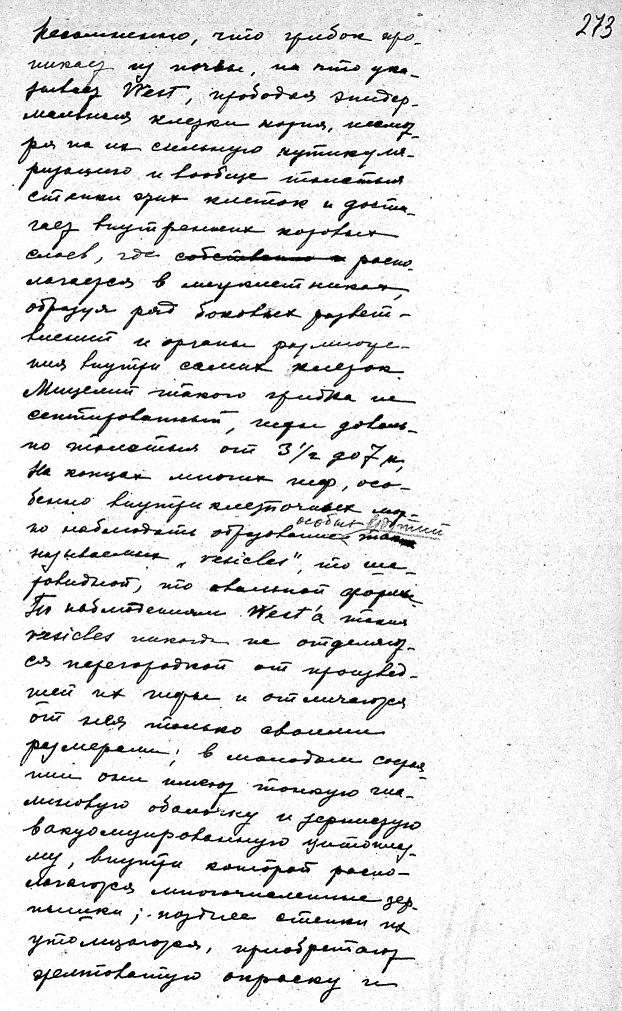 273
Несомненно, что грибок про-
никает из почвы, на что ука-
зывает West, прободая эпидер-
мальныя клетки корня, несмот-
ря на их сильную кутикуля-
ризацию и вообще толстыя
стенки этих клеток и дости-
гает внутренних коровых
слоев, где собственно и распо-
лагается в межклетниках,
образуя ряд боковых развет-
влений и органы размноже-
ния внутри самих клеток.
Мицелий такого грибка не
септированный, гифы доволь-
но толстыя от 3 1/2 до 7 µ,
На концах многих гиф, осо-
бенно внутриклеточных мож-
но наблюдать образование так
особых вздутий
называемых „vesicles", то ша-
ровидной, то овальной формы.
По наблюдениям West'а такия
vesicles никогда не отделяют-
ся перегородкой от произвед-
шей их гифы и отличаются
от нея только своими
размерами; в молодом состоя-
нии они имеют тонкую гиа-
линовую оболочку и зернистую
вакуолизированную цитоплаз-
му, внутри которой распо-
лагаются многочисленные зер-
нышки; позднее стенки их
утолщаются, приобретают
желтоватую окраску и